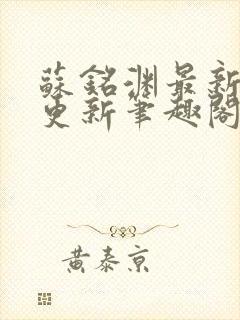 蘇銘淵最新
更新筆趣閣
黃泰京